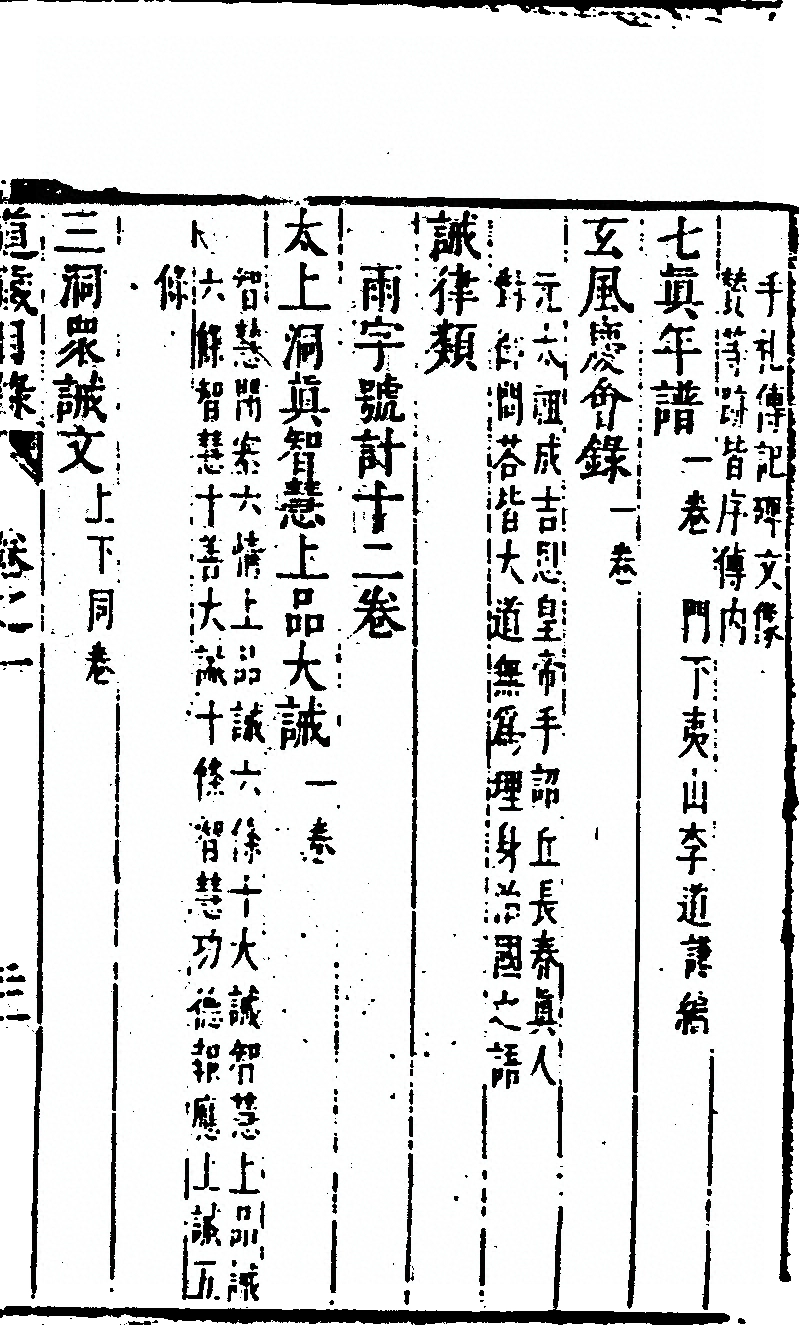 手札傳記碑文像
贊等跡皆序傳內
七眞年譜一卷　門下夷山李道謙編
玄風慶會錄一卷
元太祖成吉思皇帝手詔丘長春眞人
對御問荅皆大道無爲理身治國之語
誡律類
雨字號計十二卷
太上洞眞智慧上品大誡一卷
智慧閉塞六情上品誡六條十大誡智慧上品誡
六條智慧十善大誡十條智慧功德報應上誡五
條
三洞眾誡文上下同卷
道藏目錄 卷之一